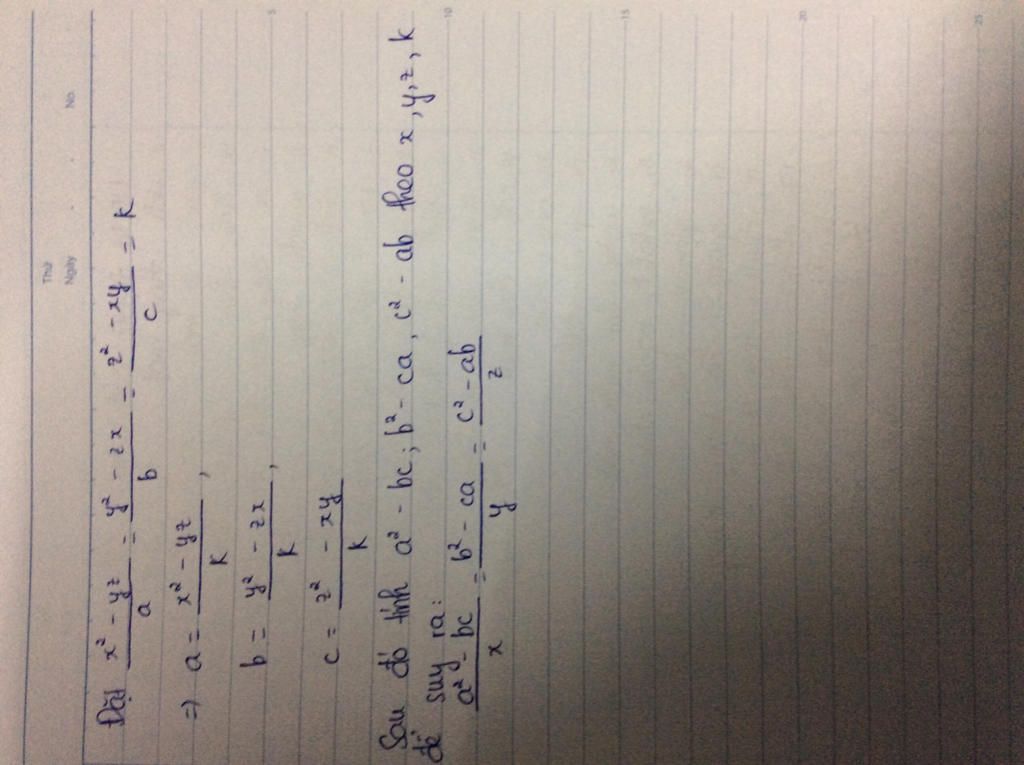 Thứ
Ngày . . No.
Đặt x² - yz / a = y² - zx / b = z² - xy / c = k
=) a = x² - yz / k ,
b = y² - zx / k ,
c = z² - xy / k
Sau đó tính a² - bc ; b² - ca , c² - ab theo x , y , z , k
để suy ra :
a² - bc / x = b² - ca / y = c² - ab / z
5
10
15
20
25